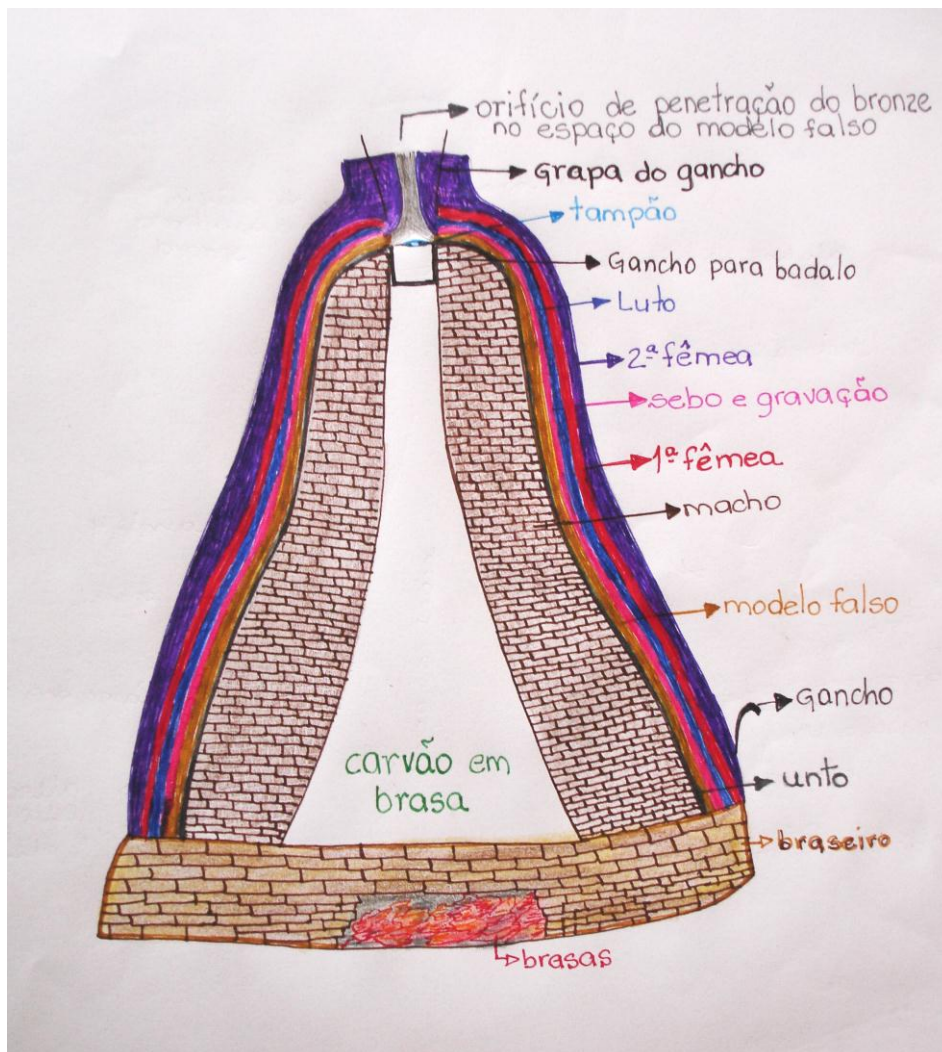 orifício de penetração do bronze
no espaço do modelo falso
Grapa do gancho
tampão
Gancho para badalo
Luto
2ª fêmea
sebo e gravação
1ª fêmea
macho
modelo falso
Gancho
unto
carvão em
brasa
braseiro
brasas